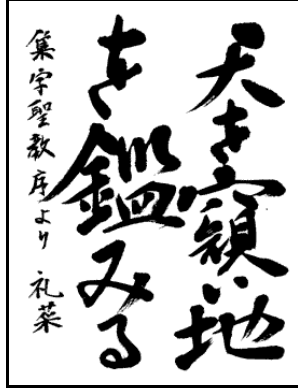 天を窺い地
を鑑みる
集字聖教序より 礼菜